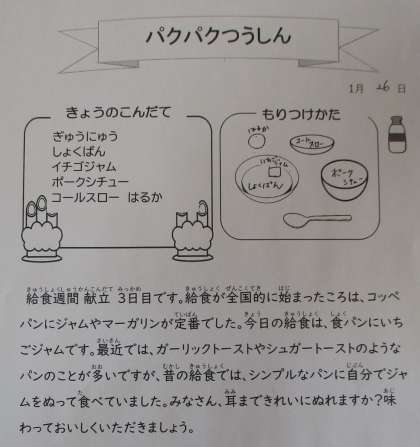 パクパクつうしん
1月 26日
きょうのこんだて
ぎゅうにゅう
しょくぱん
イチゴジャム
ポークシチュー
コールスロー はるか
もりつけかた
はるか
コールスロー
いちごジャム
しょくぱん
ポークシチュー
給食週間 献立 3日目です。給食が全国的に始まったころは、コッペ
パンにジャムやマーガリンが定番でした。今日の給食は、食パンにいち
ごジャムです。最近では、ガーリックトーストやシュガートーストのような
パンのことが多いですが、昔の給食では、シンプルなパンに自分でジャ
ムをぬって食べていました。みなさん、耳まできれいにぬれますか？味
わっておいしくいただきましょう。